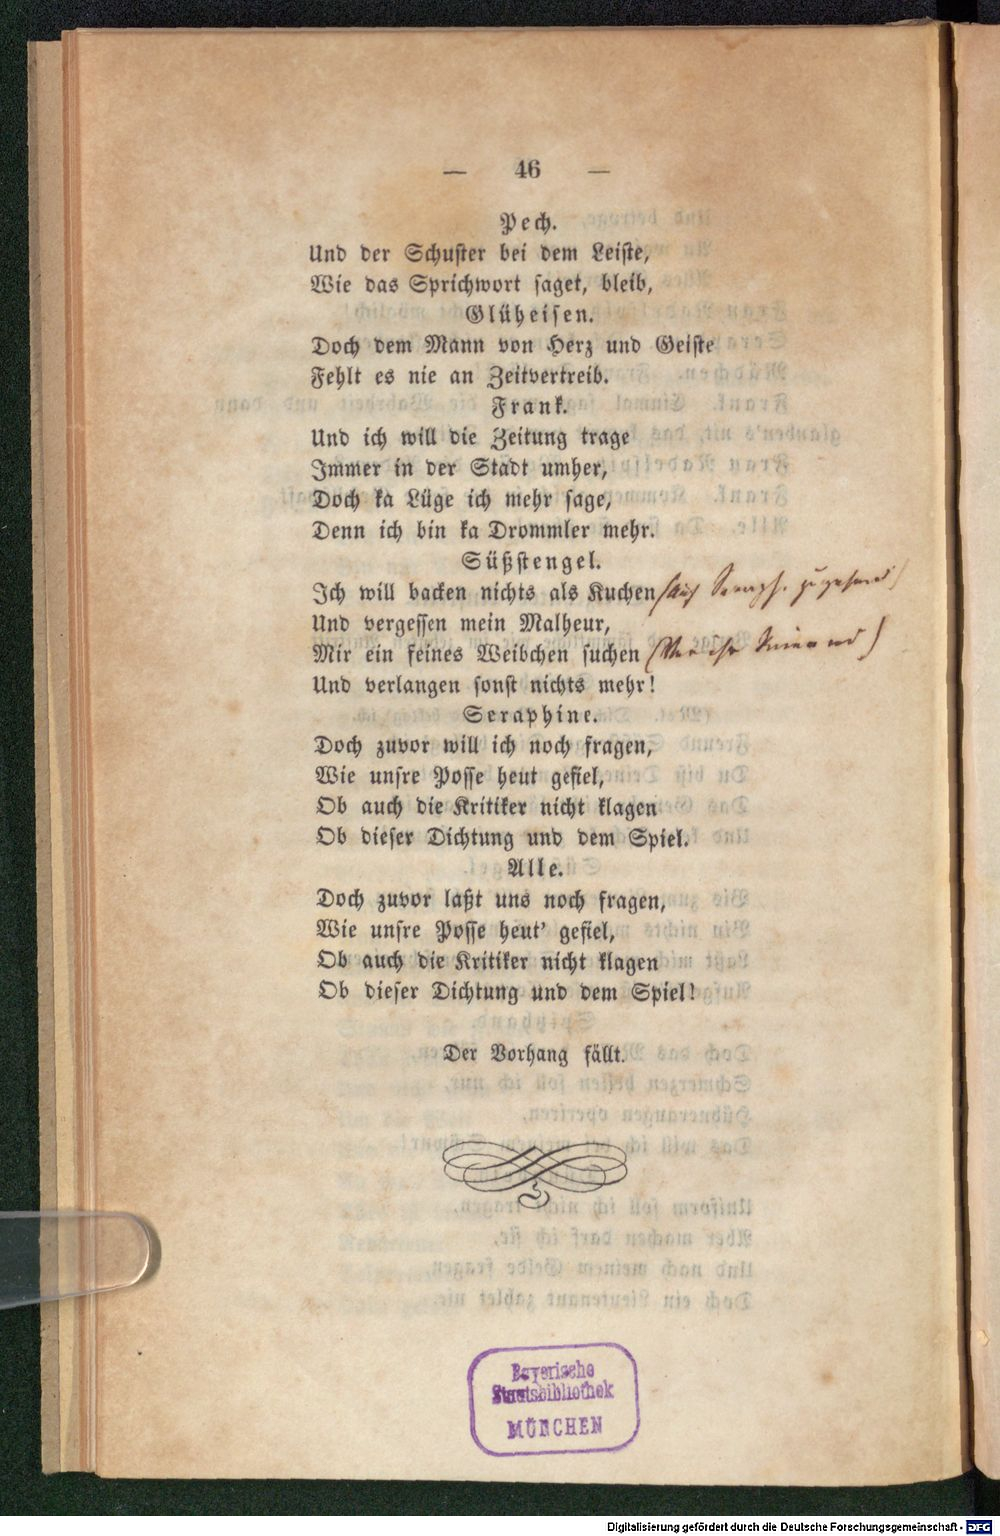 — 46 —
Pech.
Und der Schuster bei dem Leiste,
Wie das Sprichwort saget, bleib,
Glüheisen.
Doch dem Mann von Herz und Geiste
Fehlt es nie an Zeitvertreib.
Frank.
Und ich will die Zeitung trage
Immer in der Stadt umher,
Doch ka Lüge ich mehr sage,
Denn ich bin ka Drommler mehr.
Süßstengel.
Ich will backen nichts als Kuchen (auf Seraph. zugehend)
Und vergessen mein Malheur,
Mir ein feines Weibchen suchen (Vor ihr knieend)
Und verlangen sonst nichts mehr!
Seraphine.
Doch zuvor will ich noch fragen,
Wie unsre Posse heut gefiel,
Ob auch die Kritiker nicht klagen
Ob dieser Dichtung und dem Spiel.
Alle.
Doch zuvor laßt uns noch fragen,
Wie unsre Posse heut' gefiel,
Ob auch die Kritiker nicht klagen
Ob dieser Dichtung und dem Spiel!
Der Vorhang fällt.
Bayerische
Staatsbibliothek
MÜNCHEN
Digitalisierung gefördert durch die Deutsche Forschungsgemeinschaft - DFG